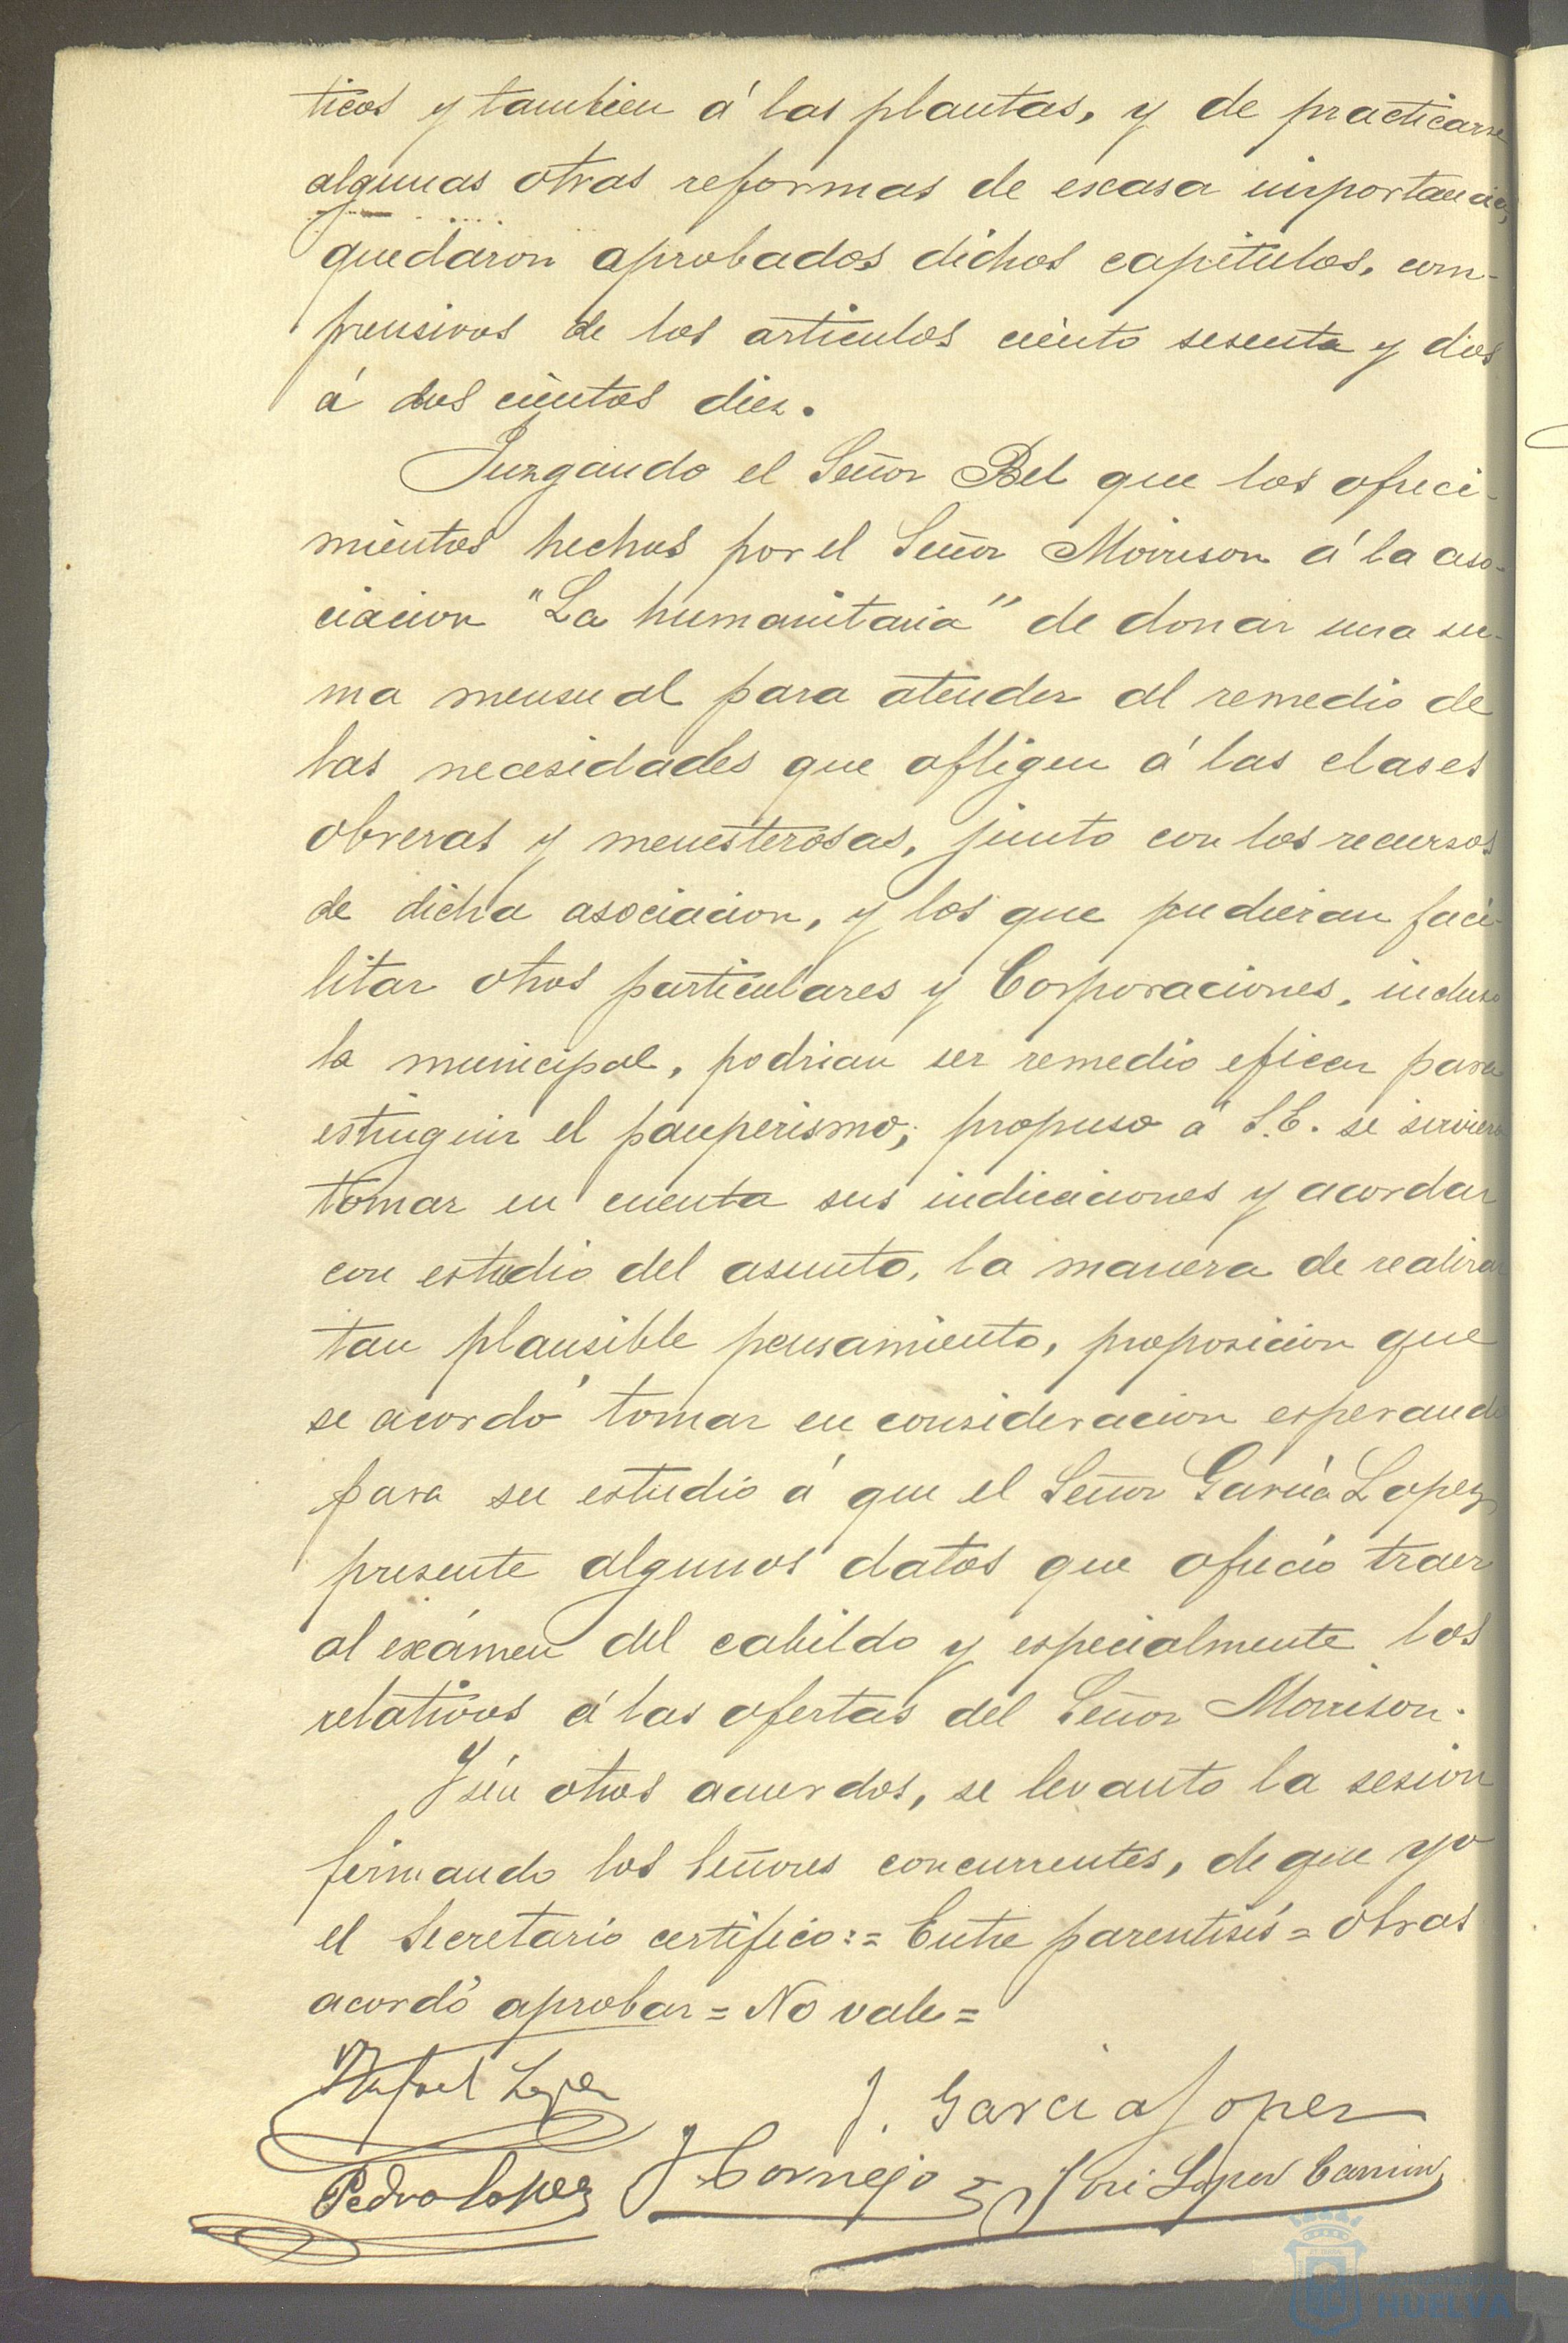 ticos y tambien á las plantas, y de practicarse
algunas otras reformas de escasa importancia,
quedaron aprobados dichos capítulos, com-
prensivos de los artículos ciento sesenta y dos
á dos cientos diez.
Juzgando el Señor Bel que los ofreci-
mientos hechos por el Señor Morrison á la aso-
ciacion "La humanitaria" de donar una su-
ma mensual para atender al remedio de
las necesidades que afligen á las clases
obreras y menesterosas, junto con los recursos
de dicha asociacion, y los que pudieran faci-
litar otros particulares y Corporaciones, incluso
la municipal, podrian ser remedio eficaz para
estinguir el pauperismo; propuso á S.E. se sirviera
tomar en cuenta sus indicaciones y acordar
con estudio del asunto, la manera de realizar
tan plausible pensamiento, proposicion que
se acordó tomar en consideracion esperando
para su estudio á que el Señor García Lopez
presente algunos datos que ofreció traer
al exámen del cabildo y especialmente los
relativos á las ofertas del Señor Morrison.
Y sin otros acuerdos, se levanto la sesion
firmando los Señores concurrentes, de que yo
el Secretario certifico:= Entre parentisis = otras
acordó aprobar = No vale =
Rafael Lopez
J. Garcia Lopez
Pedro Lopez J Cornejo José Lopez Carrion
HUELVA